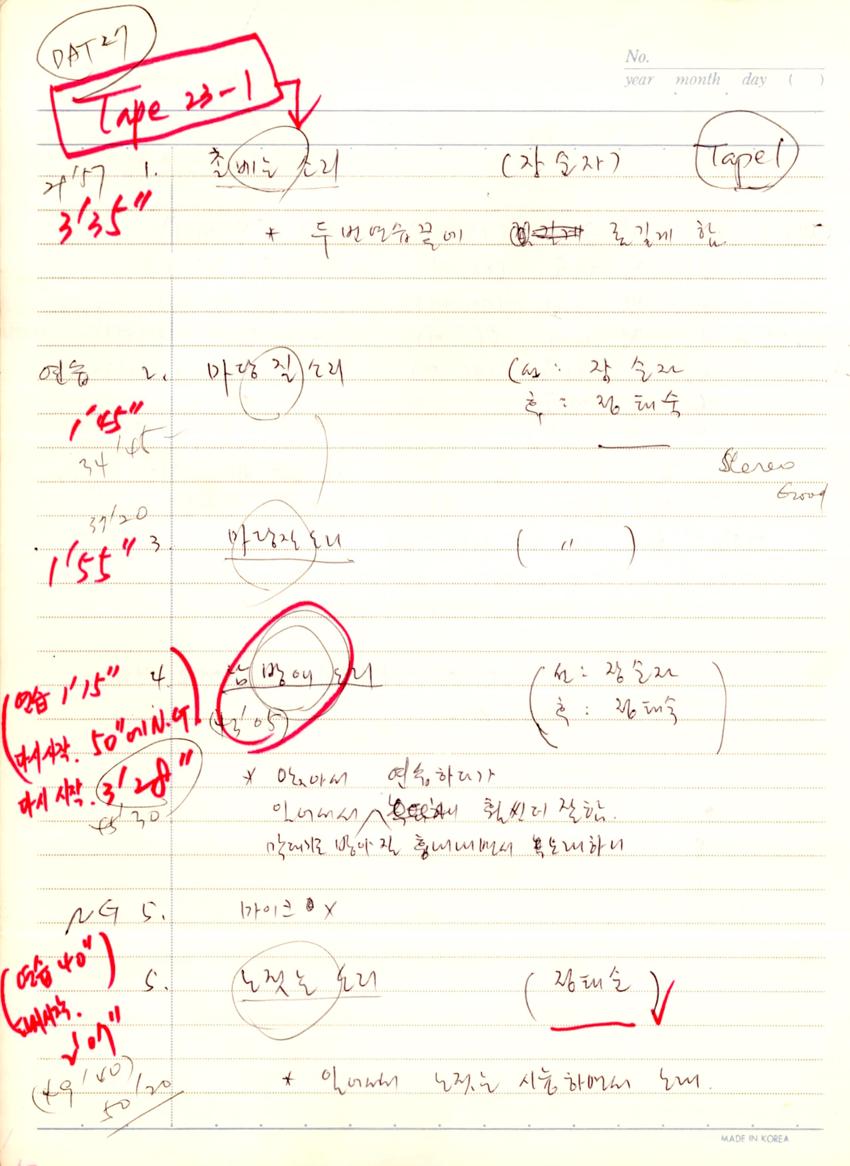 DAT 27
No.
year month day ( )
Tape 23-1
Tape 1
29'57 1. 촐베는소리 (장순자)
3'35"
* 두번연습끝에 길게 함.
연습 2. 마당질소리 (선: 장순자
후: 정태숙
1'45"
34'45
Stereo
Good
37'20
1'55" 3. 마당질소리 ( 〃 )
(연습 1'15" 4. 방애소리 (선: 장순자
(43'05) 후: 정태숙)
다시시작. 50"에 N.G
다시 시작. 3'28"
45'30
* 앉아서 연습하다가
일어서서 훨씬 더 잘함.
막대기로 방아 찧 흉내내면서 노래하니
NG 5. 마이크 x
(연습 40")
5. 노젓는소리 (정태순)
다시시작.
(49'40)
50'20
* 일어서서 노젓는 시늉하면서 노래.
MADE IN KOREA